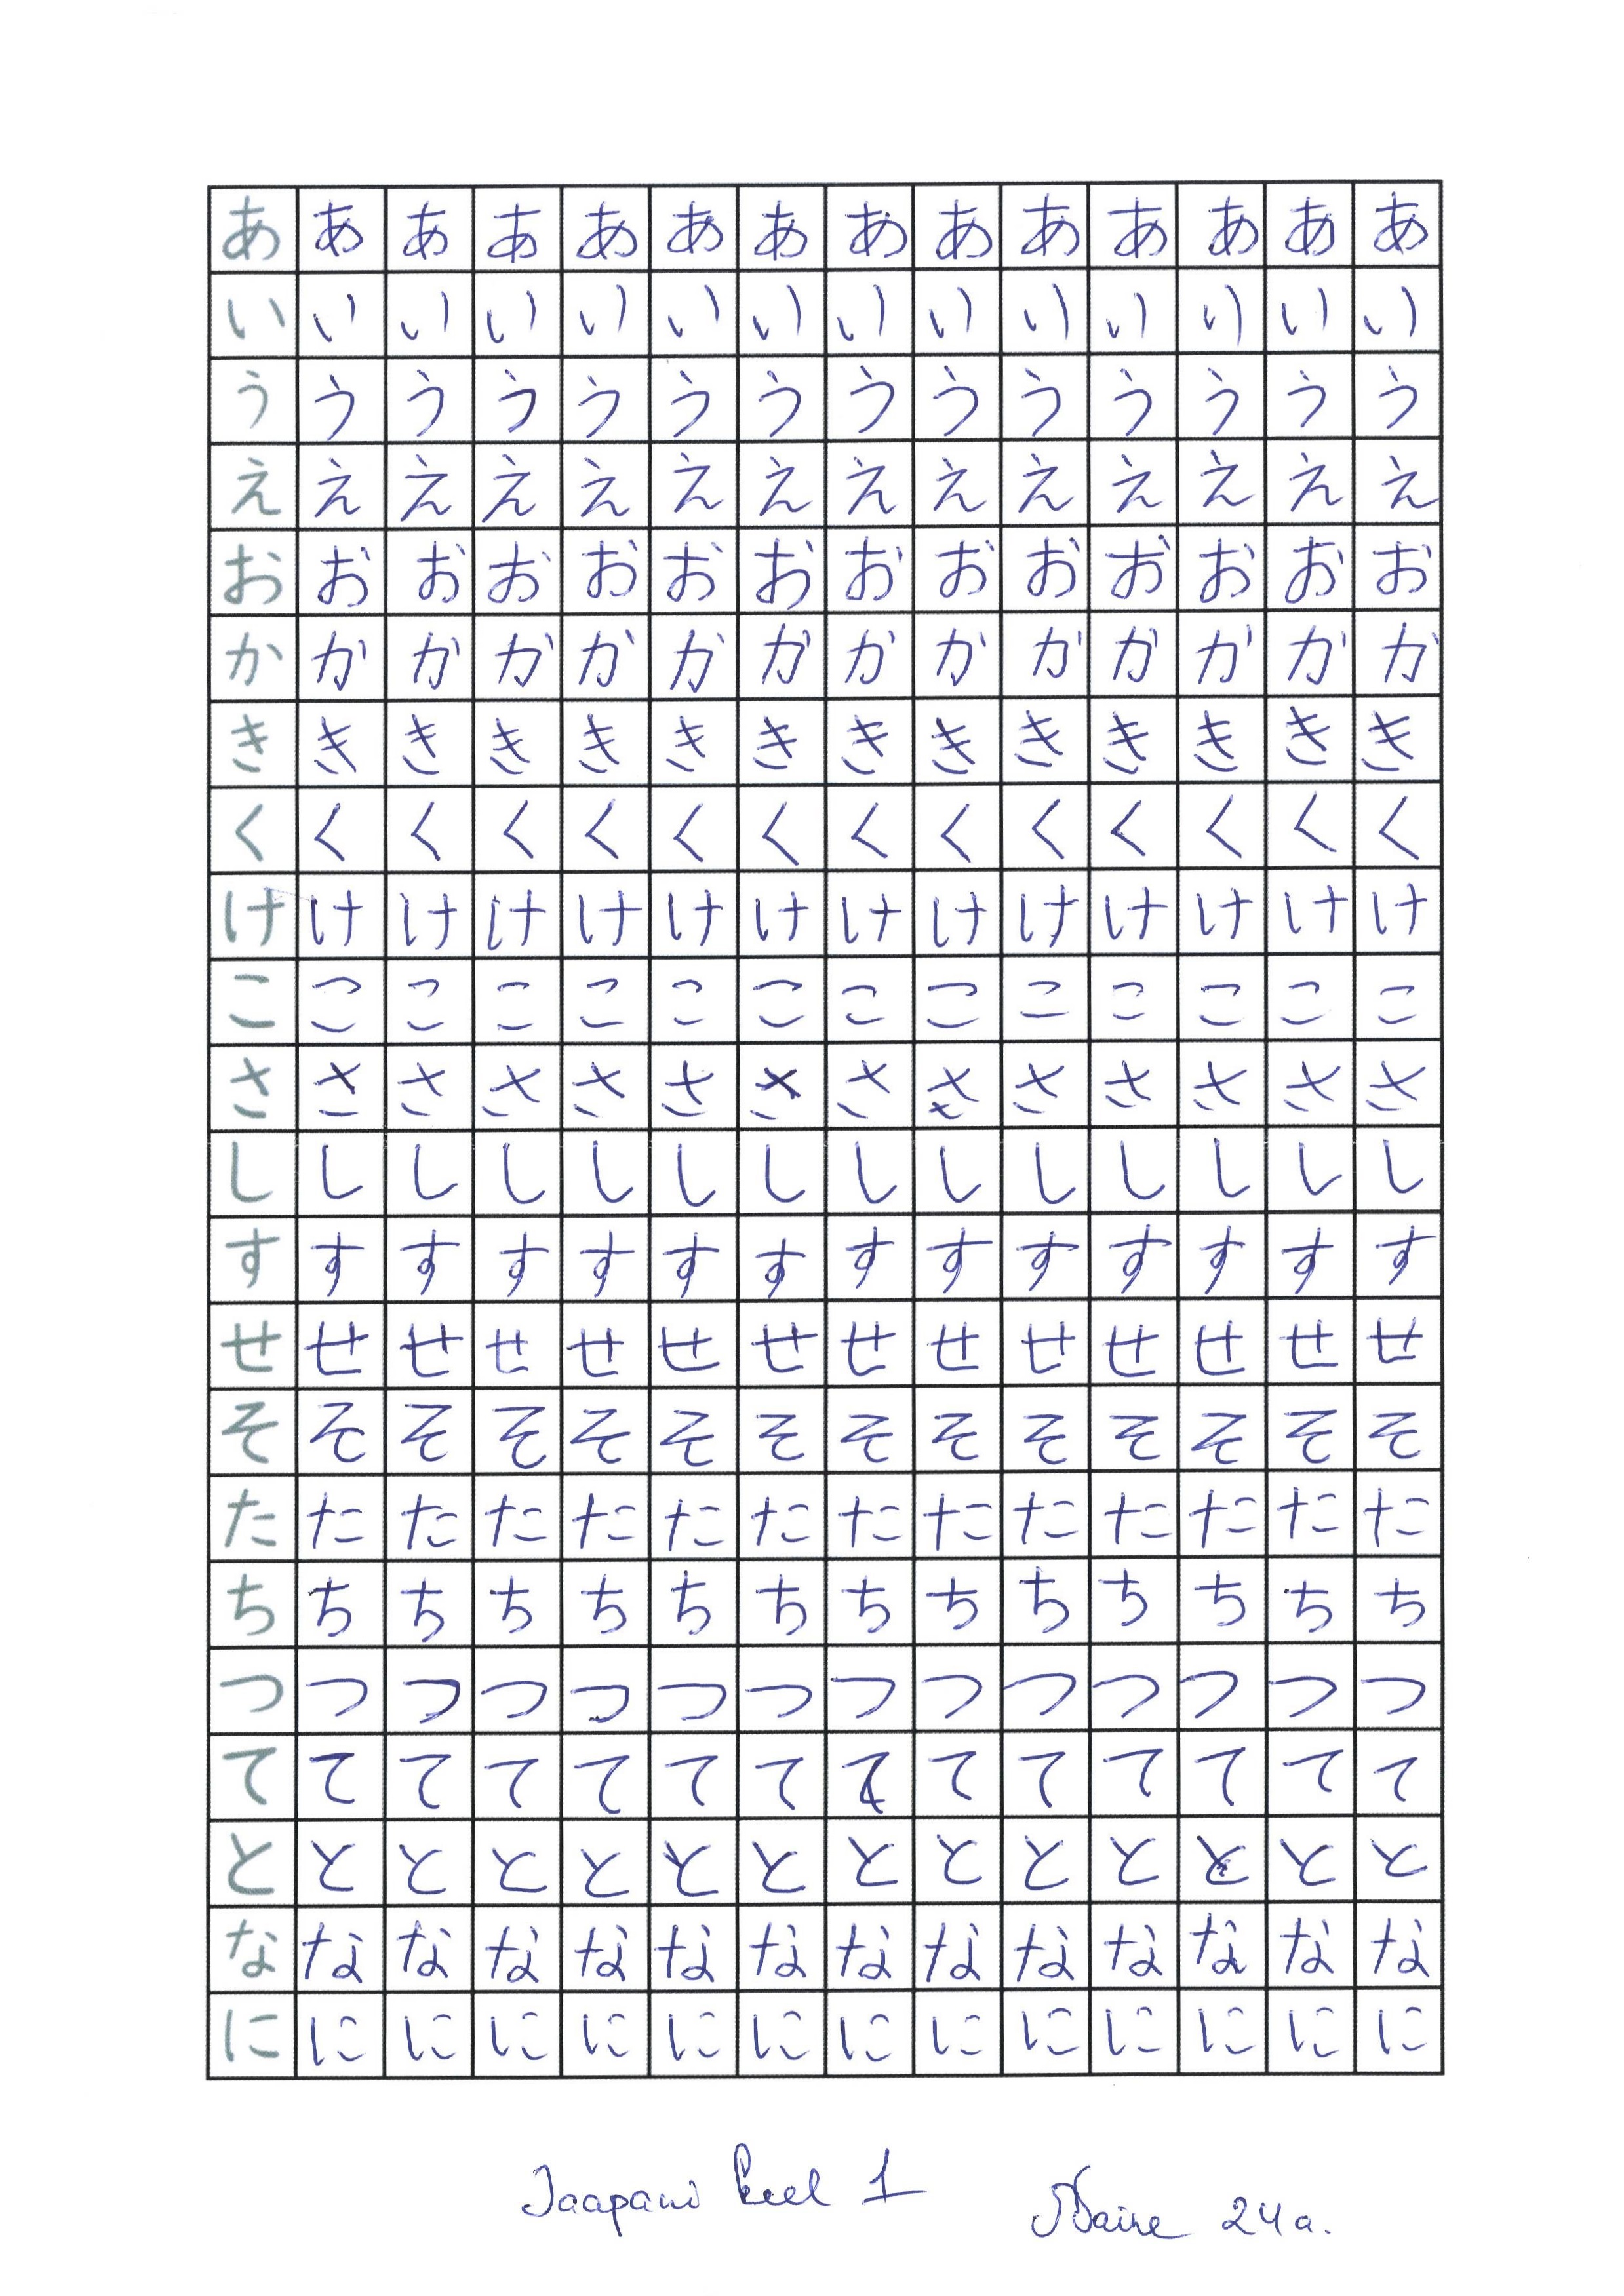 あ あ あ あ あ あ あ あ あ あ あ あ あ あ
い い い い い い い い い い い い い い
う う う う う う う う う う う う う う
え え え え え え え え え え え え え え
お お お お お お お お お お お お お お
か か か か か か か か か か か か か か
き き き き き き き き き き き き き き
く く く く く く く く く く く く く く
け け け け け け け け け け け け け け
こ こ こ こ こ こ こ こ こ こ こ こ こ こ
さ さ さ さ さ さ さ さ さ さ さ さ さ さ
し し し し し し し し し し し し し し
す す す す す す す す す す す す す す
せ せ せ せ せ せ せ せ せ せ せ せ せ せ
そ そ そ そ そ そ そ そ そ そ そ そ そ そ
た た た た た た た た た た た た た た
ち ち ち ち ち ち ち ち ち ち ち ち ち ち
つ つ つ つ つ つ つ つ つ つ つ つ つ つ
て て て て て て て て て て て て て て
と と と と と と と と と と と と と と
な な な な な な な な な な な な な な
に に に に に に に に に に に に に に
Jaapani keel 1
24a.